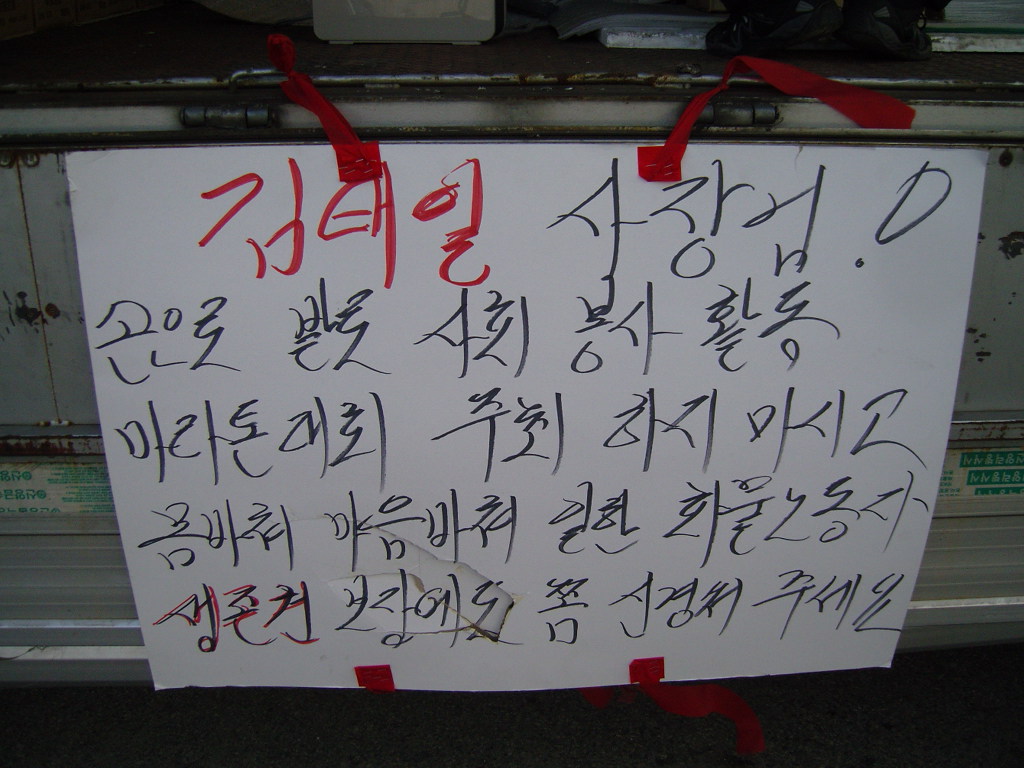 김태일 사장님.!
손으로 발로 사회 봉사 활동
마라톤대회 주최 하지 마시고
몸바쳐 마음바쳐 일한 화물노동자
생존권 보장에도 쫌 신경써 주세요